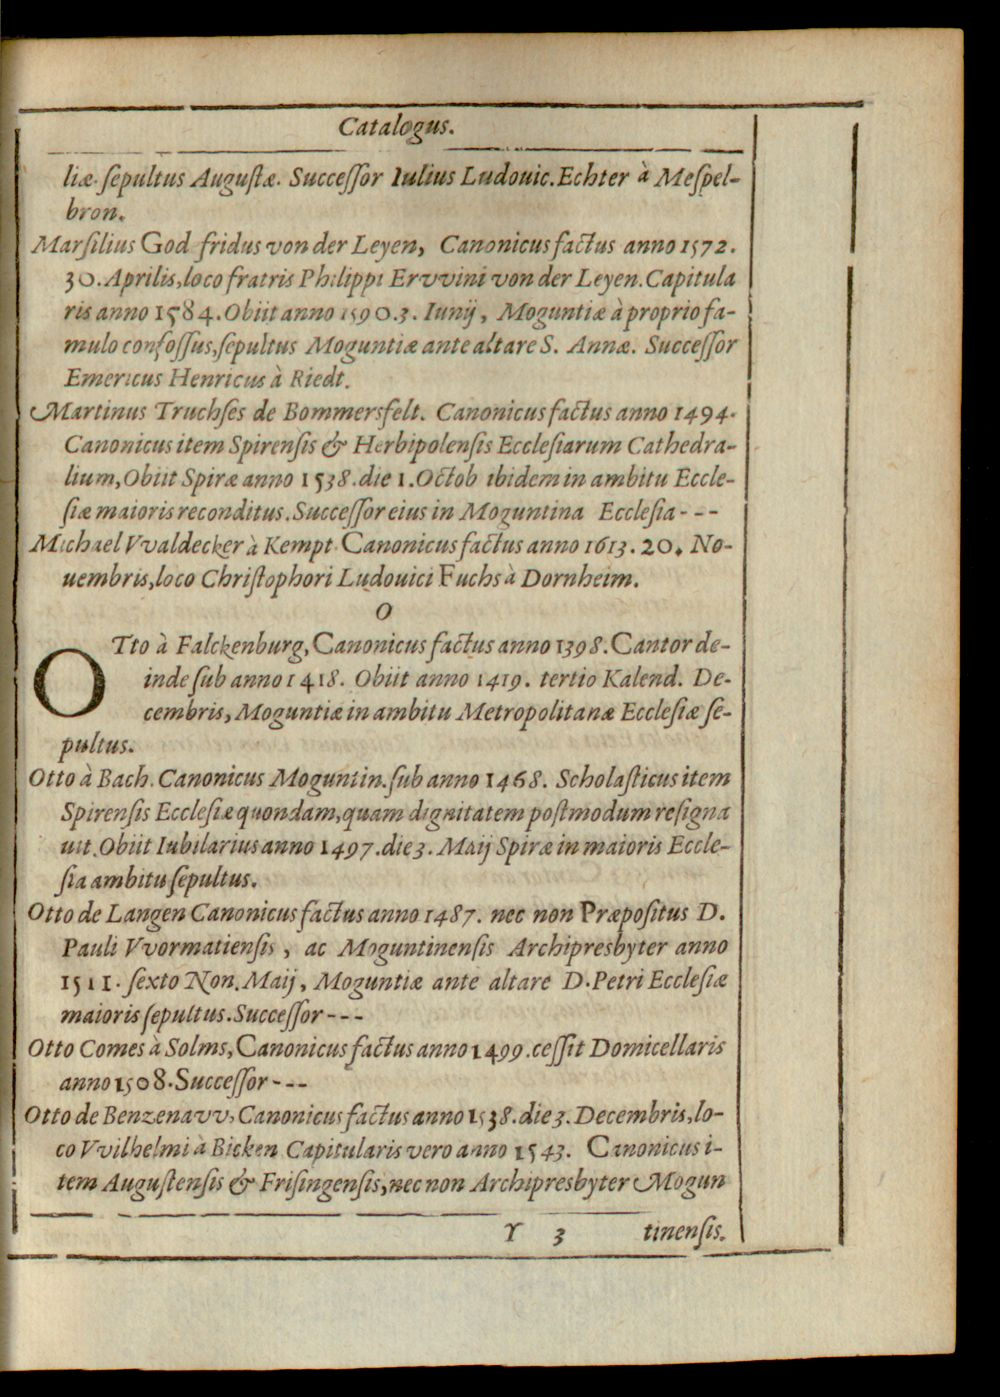 Catalogus.
liæ. ſepultus Auguſtæ. Succeſſor Iulius Ludouic. Echter à Meſpel-
bron.
Marſilius Godfridus von der Leyen, Canonicus factus anno 1572.
30. Aprilis, loco fratris Philippi Ervvini von der Leyen. Capitula
ris anno 1584. Obiit anno 1590. 3. Iunij, Moguntiæ à proprio fa-
mulo confoſſus, ſepultus Moguntiæ ante altare S. Annæ. Succeſſor
Emericus Henricus à Riedt.
Martinus Truchſes de Bommersfelt. Canonicus factus anno 1494.
Canonicus item Spirenſis & Herbipolenſis Eccleſiarum Cathedra-
lium, Obiit Spiræ anno 1538. die 1. Octob ibidem in ambitu Eccle-
ſiæ maioris reconditus. Succeſſor eius in Moguntina Eccleſia - - -
Michael Vvaldecker à Kempt. Canonicus factus anno 1613. 20. No-
uembris, loco Chriſtophori Ludouici Fuchs à Dornheim.
O
OTto à Falckenburg, Canonicus factus anno 1398. Cantor de-
inde ſub anno 1418. Obiit anno 1419. tertio Kalend. De-
cembris, Moguntiæ in ambitu Metropolitanæ Eccleſiæ ſe-
pultus.
Otto à Bach. Canonicus Moguntin. ſub anno 1468. Scholaſticus item
Spirenſis Eccleſiæ quondam, quam dignitatem poſtmodum reſigna
uit. Obiit Iubilarius anno 1497. die 3. Maij Spiræ in maioris Eccle-
ſia ambitu ſepultus.
Otto de Langen Canonicus factus anno 1487. nec non Præpoſitus D.
Pauli Vvormatienſis, ac Moguntinenſis Archipresbyter anno
1511. ſexto Non. Maij, Moguntiæ ante altare D. Petri Eccleſiæ
maioris ſepultus. Succeſſor - - -
Otto Comes à Solms, Canonicus factus anno 1499. ceſſit Domicellaris
anno 1508. Succeſſor - - -
Otto de Benzenavv, Canonicus factus anno 1538. die 3. Decembris, lo-
co Vvilhelmi à Bicken Capitularis vero anno 1543. Canonicus i-
tem Auguſtenſis & Friſingenſis, nec non Archipresbyter Mogun
Y 3 tinenſis.